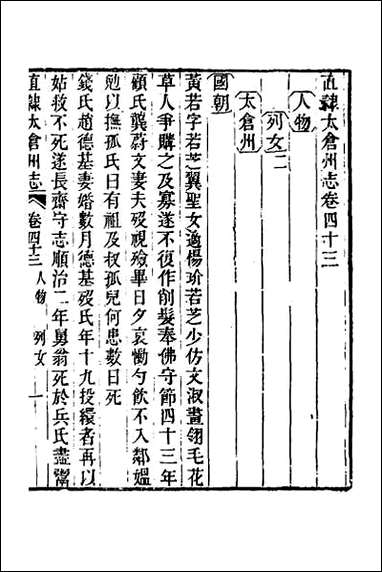 直隸太倉州志卷四十三
人物
列女二
太倉州
國朝
黃若字若芝翼聖女適楊玠若芝少仿文淑畫翎毛花
草人爭購之及寡遂不復作削髮奉佛守節四十三年
顧氏龔蔚文妻夫歿視殮畢日夕哀慟勺飲不入鄰媼
勉以撫孤氏曰有祖及叔孤兒何患數日死
錢氏趙德基妻婚數月德基歿氏年十九投繯者再以
姑救不死遂長齋守志順治二年舅翁死於兵氏盡鬻
直隸太倉州志 卷四十三人物 列女 一